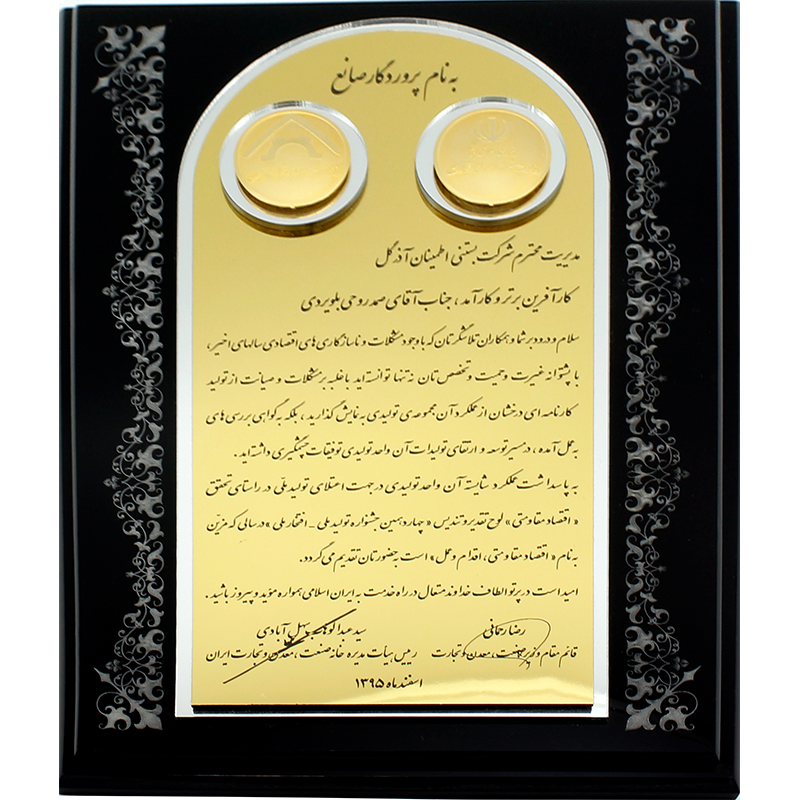 به نام پروردگار صانع
مدیریت محترم شرکت بستنی اطمینان آذر گل
کارآفرین برتر و کارآمد ، جناب آقای صمد روحی بلویردی
سلام و درود بر شما و همکاران تلاشگرتان که با وجود مشکلات و ناسازگاری های اقتصادی سالهای اخیر،
با پشتوانه غیرت و حمیت و تخصص تان نه تنها توانسته اید با غلبه بر مشکلات و صیانت از تولید
کارنامه ای درخشان از عملکرد آن مجموعه ی تولیدی به نمایش گذارید ، بلکه به گواهی بررسی های
به عمل آمده ، در مسیر توسعه و ارتقای تولیدات آن واحد تولیدی توفیقات چشمگیری داشته اید .
به پاسداشت عملکرد شایسته آن واحد تولیدی در جهت اعتلای تولید ملّی در راستای تحقق
« اقتصاد مقاومتی » لوح تقدیر و تندیس « چهاردهمین جشنواره تولید ملی - افتخار ملی » در سالی که مزیّن
به نام « اقتصاد مقاومتی ، اقدام و عمل » است به حضورتان تقدیم می گردد.
امید است در پرتو الطاف خداوند متعال در راه خدمت به ایران اسلامی همواره مؤید و پیروز باشید .
رضا رحمانی
قائم مقام وزیر صنعت، معدن و تجارت
سید عبدالوهاب سهل آبادی
رییس هیأت مدیره خانه صنعت ، معدن و تجارت ایران
اسفند ماه ۱۳۹۵